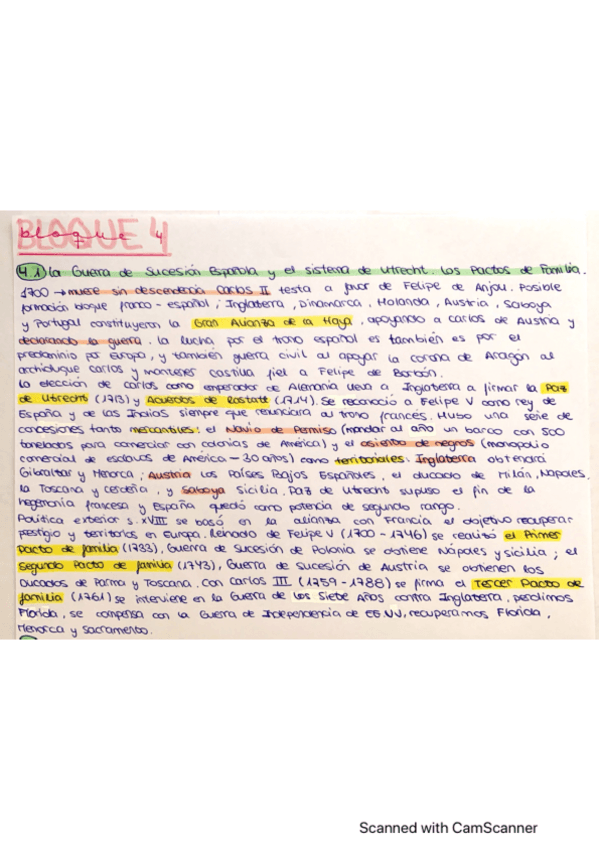 BLOQUE 4
bloque 4
4.1 La Guerra de Sucesión Española y el sistema de Utrecht. Los Pactos de Familia.
1700 → muere sin descendencia Carlos II testa a favor de Felipe de Anjou. Posible
formación bloque franco-español; Inglaterra, Dinamarca, Holanda, Austria, Saboya
y Portugal constituyeron la Gran Alianza de la Haya, apoyando a Carlos de Austria y
declarando la guerra. La lucha por el trono español es también es por el
predominio por Europa, y también guerra civil al apoyar la corona de Aragón al
archiduque Carlos y mantener Castilla fiel a Felipe de Borbón.
La elección de Carlos como emperador de Alemania lleva a Inglaterra a firmar la Paz
de Utrecht (1713) y Acuerdos de Rastatt (1714). Se reconoció a Felipe V como rey de
España y de las Indias siempre que renunciara al trono francés. Hubo una serie de
concesiones tanto mercantiles: el Navío de Permiso (mandar al año un barco con 500
toneladas para comerciar con colonias de América) y el asiento de negros (monopolio
comercial de esclavos de América - 30 años) como territoriales: Inglaterra obtendrá
Gibraltar y Menorca; Austria los Países Bajos Españoles, el ducado de Milán, Nápoles,
la Toscana y Cerdeña, y Saboya Sicilia. Paz de Utrecht supuso el fin de la
hegemonía francesa y España quedó como potencia de segundo rango.
Política exterior s. XVIII se basó en la alianza con Francia el objetivo recuperar
prestigio y territorios en Europa. Reinado de Felipe V (1700-1746) se realizó el Primer
Pacto de familia (1733), Guerra de Sucesión de Polonia se obtiene Nápoles y Sicilia; el
segundo Pacto de familia (1743), Guerra de Sucesión de Austria se obtienen los
Ducados de Parma y Toscana. Con Carlos III (1759-1788) se firma el Tercer Pacto de
familia (1761) se interviene en la Guerra de los Siete Años contra Inglaterra, perdimos
Florida, se compensa con la Guerra de Independencia de EEUU, recuperamos Florida,
Menorca y Sacramento.
Scanned with CamScanner